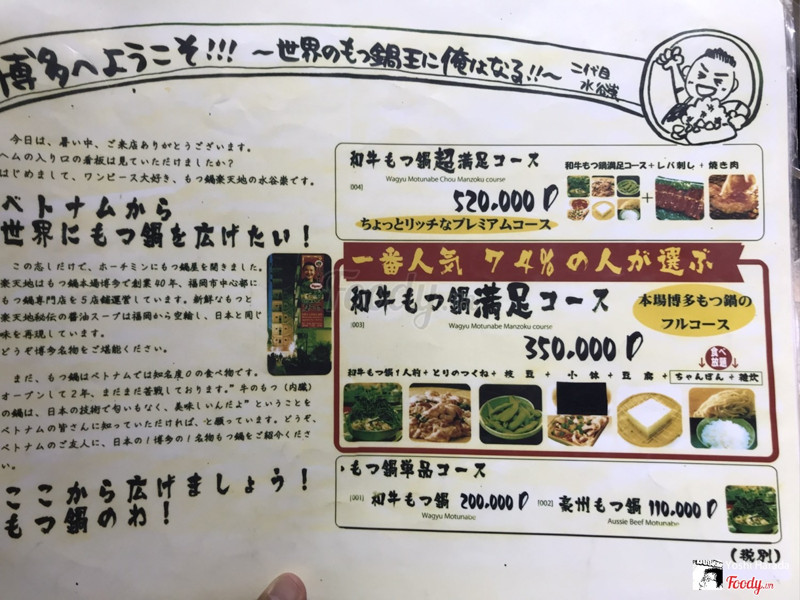 博多へようこそ!!! 〜世界のもつ鍋王に俺はなる!!〜
二代目
水谷崇
今日は、暑い中、ご来店ありがとうございます。
ヘムの入り口の看板は見ていただけましたか?
はじめまして、ワンピース大好き、もつ鍋楽天地の水谷崇です。
ベトナムから
世界にもつ鍋を広げたい!
この志しだけで、ホーチミンにもつ鍋屋を開きました。
楽天地はもつ鍋本場博多で創業40年、福岡市中心部に
もつ鍋専門店を5店舗運営しています。新鮮なもつと
楽天地秘伝の醤油スープは福岡から空輸し、日本と同じ
味を再現しています。
どうぞ博多名物をご堪能ください。
まだ、もつ鍋はベトナムでは知名度0の食べ物です。
オープンして2年、まだまだ苦戦しております。"牛のもつ(内臓)
の鍋は、日本の技術で匂いもなく、美味しいんだよ"ということを
ベトナムの皆さんに知っていただければ、と願っています。どうぞ、
ベトナムのご友人に、日本の!博多の!名物もつ鍋をご紹介くださ
い。
ここから広げましょう!
もつ鍋のわ!
和牛もつ鍋超満足コース
[004]
Wagyu Motunabe Chou Manzoku course
520.000 D
ちょっとリッチなプレミアムコース
和牛もつ鍋満足コース+レバ刺し+焼き肉
+
一番人気 74%の人が選ぶ
和牛もつ鍋満足コース
[003]
Wagyu Motunabe Manzoku course
350.000 D
本場博多もつ鍋の
フルコース
食べ
放題
和牛もつ鍋1人前+とりのつくね+枝豆+小鉢+豆腐+ちゃんぽん+雑炊
もつ鍋単品コース
[001] 和牛もつ鍋 200.000 D
Wagyu Motunabe
[002] 豪州もつ鍋 110.000 D
Aussie Beef Motunabe
(税別)
Foody
Yoshi Harada
Foody.vn